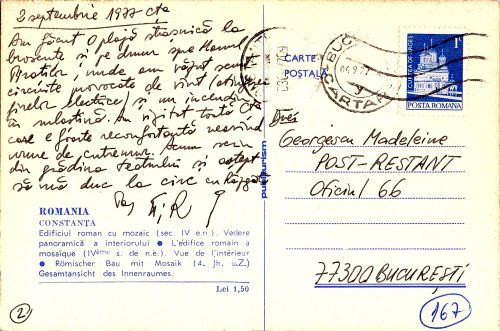 2 septembrie 1977 Cța
Am făcut o plajă strașnică la
broscute și pe drum spre Hanul
Piraților, unde am văzut scurt
circuite provocate de vînt (atingerea
firelor electrice) și un incendiu
în mlaștină. Am vizitat toată Cța
care e foarte reconfortantă neavînd
urme de cutremur. Acum scriu
din grădina teatrului și aștept
să mă duc la circ cu
ROMANIA
CONSTANȚA
Edificiul roman cu mozaic (sec. IV e.n.). Vedere
panoramică a interiorului ● L'édifice romain a
mosaïque (IVème s. de n.è.). Vue de l'intérieur
● Römischer Bau mit Mosaik (4. Jh. u.Z.)
Gesamtansicht des Innenraumes.
Lei 1,50
2
CARTE
POȘTALĂ
publiturism
BUCU
04.9.77
CARTARE
1L
CURTEA DE ARGEȘ
POSTA ROMANA
D-rei
Georgescu Madeleine
POST-RESTANT
Oficiul 66
77300 BUCUREȘTI
167